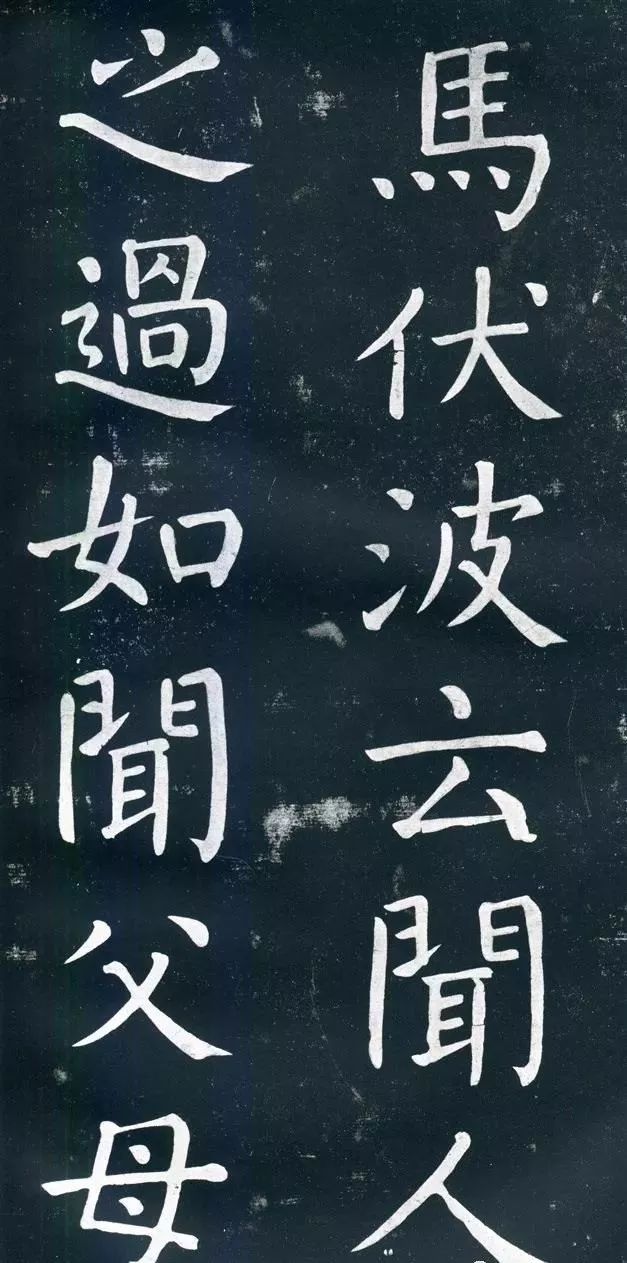 馬伏波云聞人
之過如聞父母